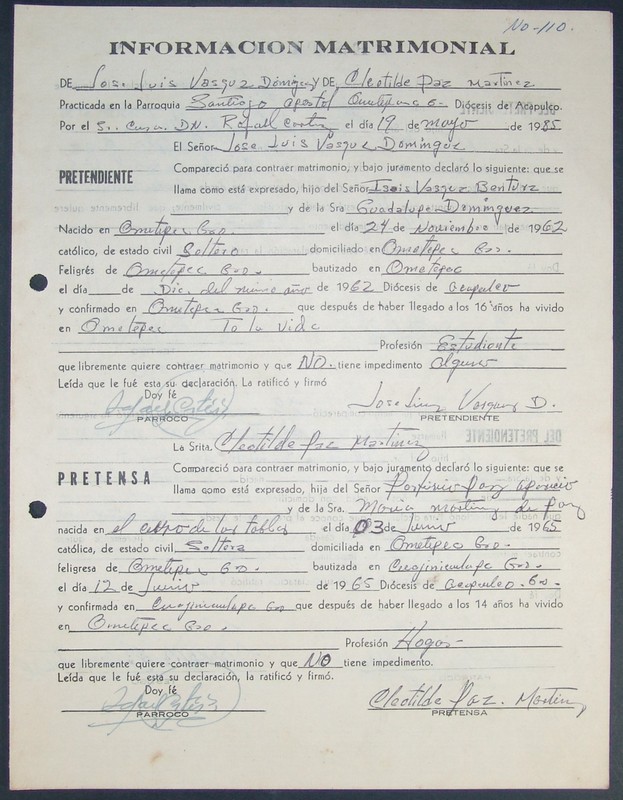 No-110.
INFORMACION MATRIMONIAL
DE Jose Luis Vasquez Dominguez Y DE Cleotilde Paz Martinez
Practicada en la Parroquia Santiago apostol Ometepec G- Diócesis de Acapulco.
Por el S.. Cura. DN. Rafael el día 19 de mayo de 1985
El Señor Jose Luis Vasque Domingue
PRETENDIENTE
Compareció para contraer matrimonio, y bajo juramento declaró lo siguiente: que se
llama como está expresado, hijo del Señor Isais Vasquez Bentura
y de la Sra. Guadalupe Dominguez
Nacido en Ometepec Gro. el día 24 de Noviembre de 1962
católico, de estado civil Soltero domiciliado en Ometepec Gro.
Feligrés de Ometepec Gro. bautizado en Ometepec
el día de Dic. del mismo año de 1962 Diócesis de Acapulco
y confirmado en Ometepec Gro que después de haber llegado a los 16 años ha vivido
en Ometepec To la vida
Profesión Estudiante
que libremente quiere contraer matrimonio y que NO. tiene impedimento alguno
Leída que le fué esta su declaración. La ratificó y firmó
Doy fé
Jose Luis Vasquez D.
PARROCO
PRETENDIENTE
La Srita. Cleotilde Paz Martinez
PRETENSA
Compareció para contraer matrimonio, y bajo juramento declaró lo siguiente: que se
llama como está expresado, hijo del Señor Porfirio Paz aparicio
y de la Sra. Maria Martinez de Paz
nacida en el de las tablas el día 03 de Junio de 1965
católica, de estado civil Soltera domiciliada en Ometepec Gro.
feligresa de Ometepec Gro. bautizada en Cuajinicuilapa Gro.
el día 12 de Junio de 1965 Diócesis de Acapulco. Gro.
y confirmada en Cuajinicuilapa Gro que después de haber llegado a los 14 años ha vivido
en Ometepec Gro.
Profesión Hogar
que libremente quiere contraer matrimonio y que NO tiene impedimento.
Leída que le fué esta su declaración, la ratificó y firmó.
Doy fé
Cleotilde Paz. Martinez
PARROCO
PRETENSA